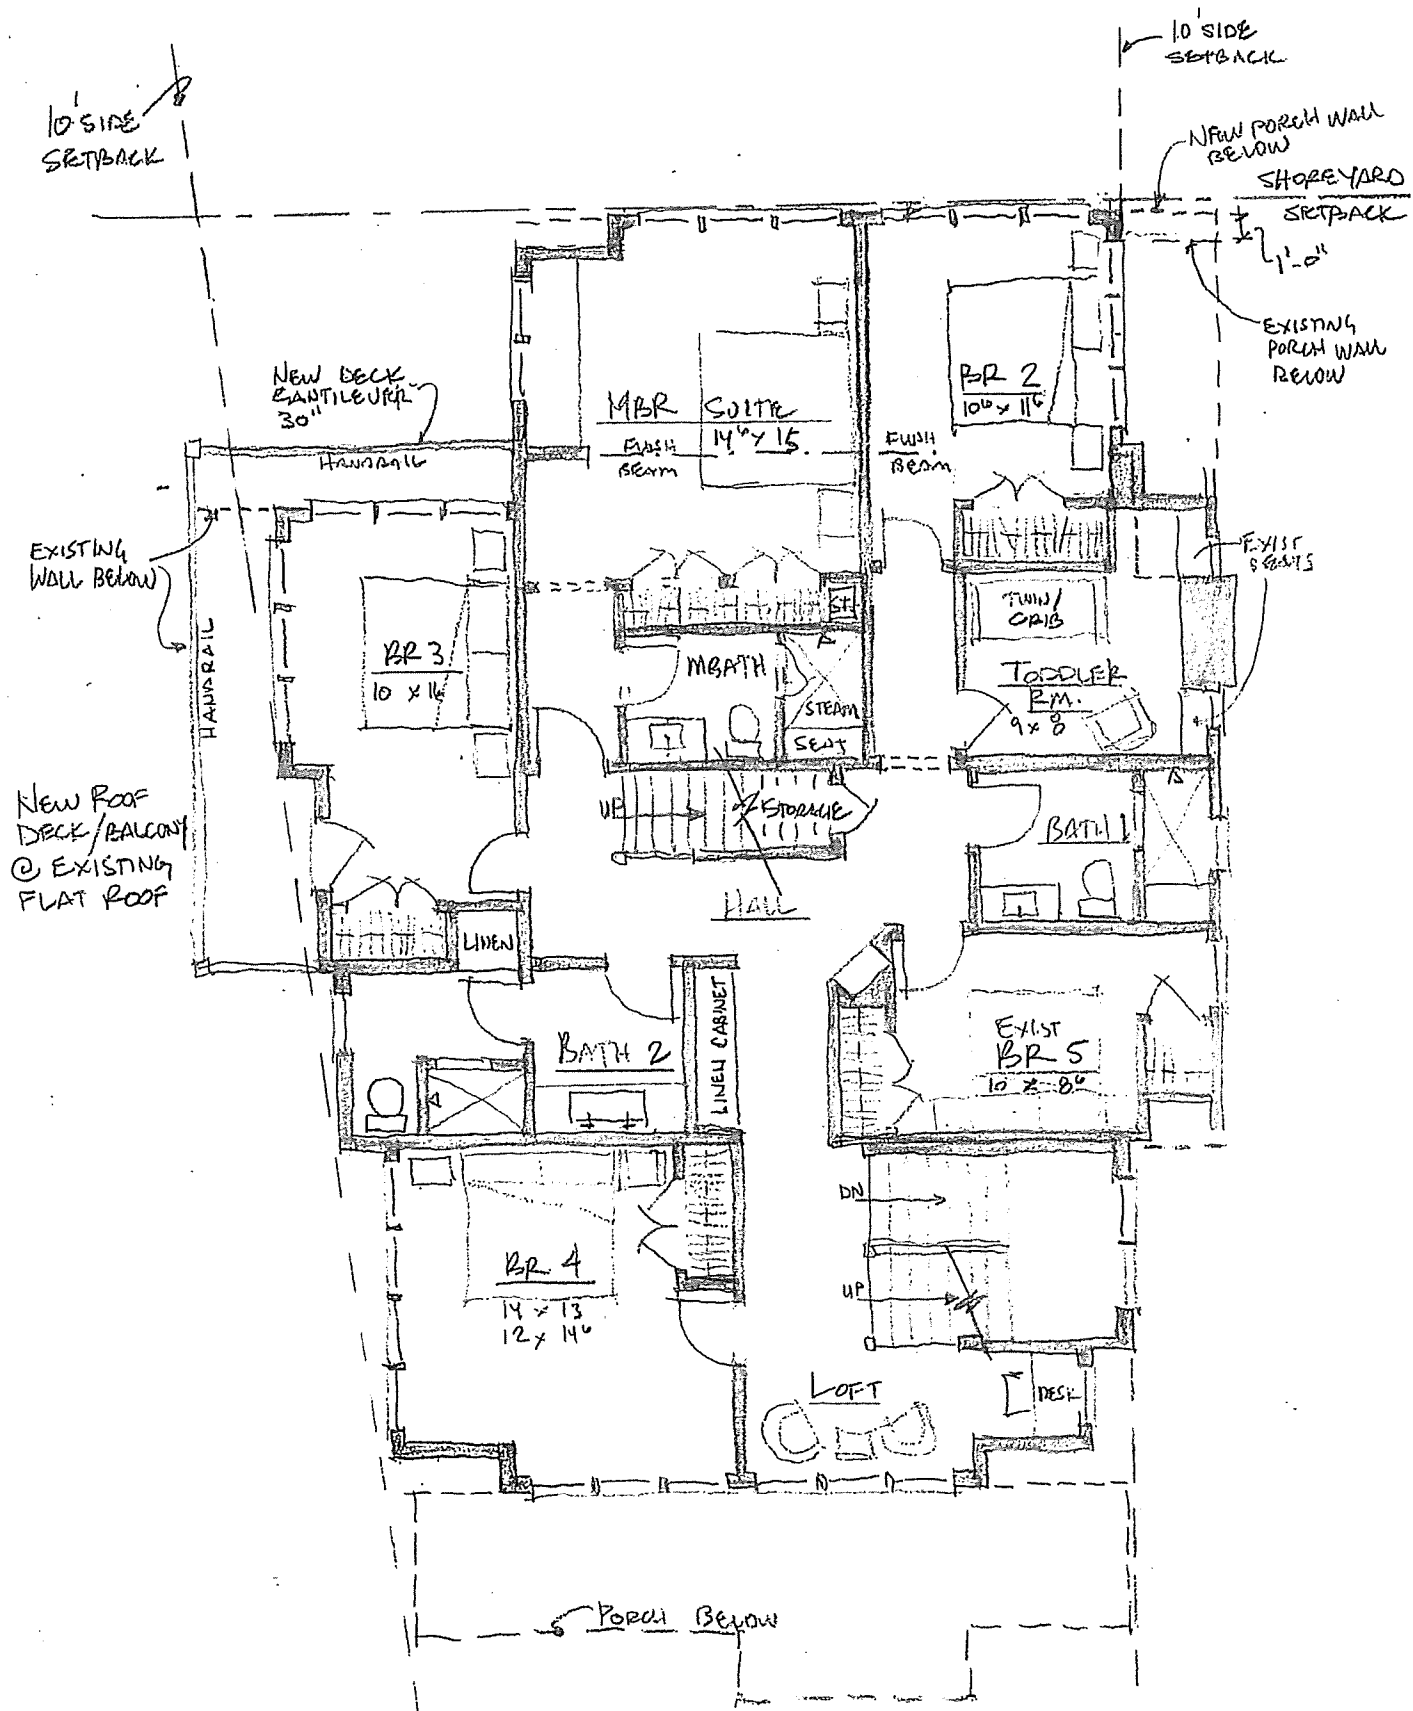 10' SIDE
SETBACK
10' SIDE
SETBACK
NEW PORCH WALL
BELOW
SHOREYARD
SETBACK
1'-0"
EXISTING
PORCH WALL
BELOW
NEW DECK
CANTILEVER
30"
HANDRAIL
MBR SUITE
14⁶ x 15
FLUSH
BEAM
BR 2
10⁶ x 11⁶
FLUSH
BEAM
EXISTING
WALL BELOW
HANDRAIL
EXIST
SEATS
ST.
TWIN/
CRIB
BR 3
10 x 16
MBATH
STEAM
SEAT
TODDLER
RM.
9 x 8
NEW ROOF
DECK/BALCONY
@ EXISTING
FLAT ROOF
UP
STORAGE
BATH 1
HALL
LINEN
BATH 2
LINEN CABINET
EXIST
BR 5
10 x 8⁶
DN
BR 4
14 x 13
12 x 14⁶
UP
LOFT
DESK
PORCH BELOW